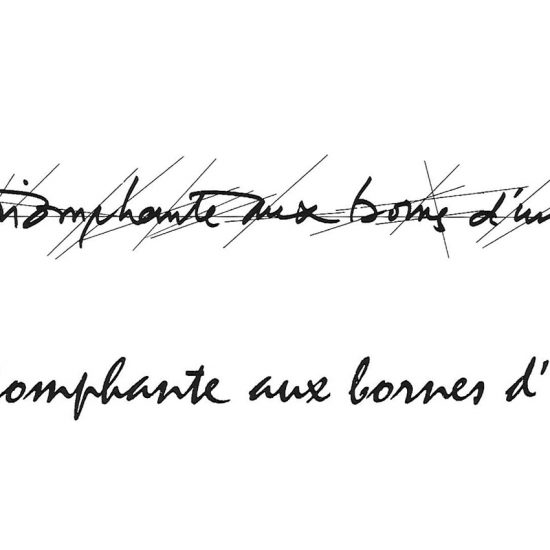 riomphante aux bornes d'un
iomphante aux bornes d'